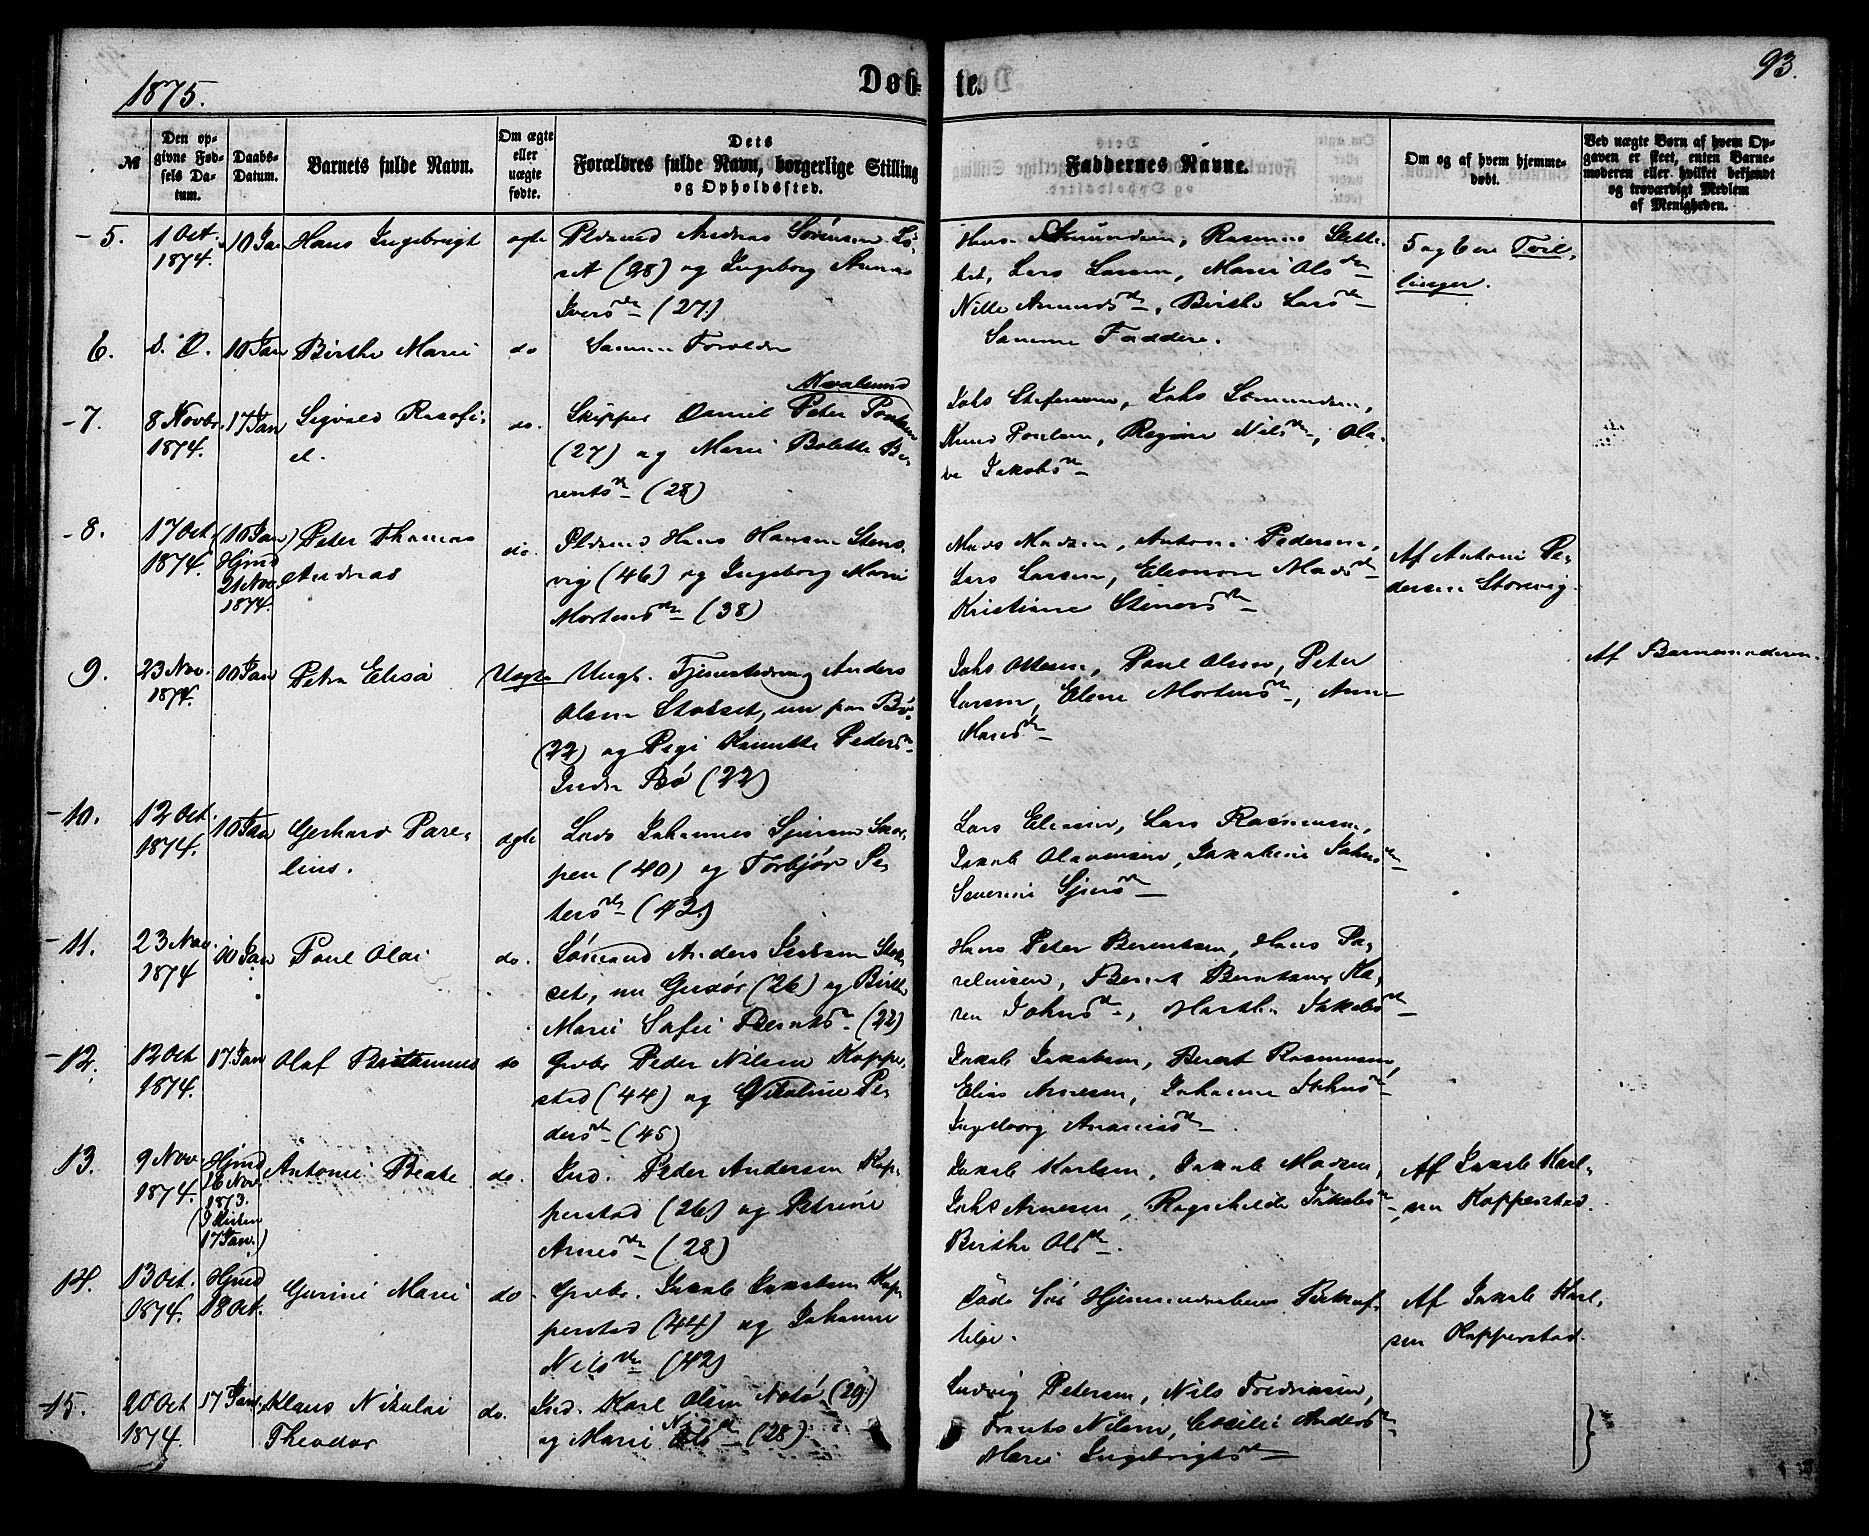 1875.
Døbte.
93.
№
Den opgivne Fødsels Datum.
Daabs-Datum.
Barnets fulde Navn.
Om ægte eller uægte fødte.
Dets Forældres fulde Navn, borgerlige Stilling og Opholdssted.
Faddernes Navne.
Om og af hvem hjemmedøbt.
Ved uægte Børn af hvem Opgaven er skeet, enten Barnemoderen eller hvilket bekjendt og troværdigt Medlem af Menigheden.
5.
1 Oct. 1874.
10 Jan
Hans Ingebrigt
ægte
Andreas Sørensen
(28) og Ingeborg Annas
Ivers (27)
Rasmus
Lars Larsen, Marie Ols
Birthe Lars
5 og 6 ere Tvillinger.
6.
d. D.
10 Jan
Birthe Marie
do
Samme Forældre
Samme Faddere.
7.
8 Novbr. 1874.
17 Jan
Sigvald
do.
Skipper Daniel Peter
(27) og Marie Bolette Berents (28)
Regine Nils, Olave Jakobs
8.
17 Oct. 1874.
(10 Jan)
Hjmd 21 Nov. 1874.
Peter Thomas Andreas
do.
Hans Hansen Stensvig (46) og Ingeborg Marie
Mortens (38)
Mads Madsen, Antoni Pedersen,
Lars Larsen, Eleonore Mads
Kristiane Steners
Af Antoni Pedersen Storvig.
9.
23 Nov. 1874.
10 Jan
Petra Elisa
Uægte
Ungk. Tjenestedreng Anders
Olsen Stokset, nu paa Bø
(22) og Pegi Knutte Peders
Indre Bø (22)
Johs Ottesen, Paul Olsen, Peter
Larsen, Elene Mortens, Anne
Mads
Af Barnemoderen.
10.
12 Oct. 1874.
10 Jan
Gerhard Parelius.
ægte
Johannes Sjursen Skorpen (40) og Torbjør Peters (42.)
Lars Eliasen, Lars Rasmussen,
Jakob Olavesen, Jakobine Johns
Severine Sjurs
11.
23 Nov. 1874
10 Jan
Paul Olai
do.
Sømand Anders Stokset, nu Gurdør (26) og Birthe
Marie Sofie Bernts (22)
Hans Peter Berentsen, Hans Parelinsen, Bernt Berntsen, Karen Johns, Jakobs
12.
12 Oct 1874.
17 Jan
Olaf
do
Grbr. Peder Nilsen Kopperstad (44) og Peders (45)
Jakob Jakobsen, Berent Rasmussen,
Elias Arnesen, Johanne Johns
Ingeborg Ananias
13.
9 Nov. 1874.
Hjmd 16 Nov. 1873.
(I Kirken 17 Jan.)
Antonie Beate
do.
Ind. Peder Andersen Kopperstad (26) og Petrine
Arnes (28)
Jakob Karlsen, Jakob Madsen,
Johs Arnesen, Ragnhilde Jakobs
Birthe Ols.
Af Jakob Karlsen Kopperstad.
14.
13 Oct. 1874.
Hjmd 18 Oct.
Gurine Marie
do
Grbr. Jakob Jakobsen Kopperstad (44) og Johanne
Nils (42)
Døde før Hjemmedaabens
Af Jakob Karlsen Kopperstad.
15.
20 Oct 1874.
17 Jan.
Klaus Nikolai Theodor
do.
Ind. Karl Olsen Notø (29)
og Marie Nils (28)
Ludvig Petersen, Nils Fredriksen,
Frants Nilsen, Cecilie Anders
Marie Ingebrigts